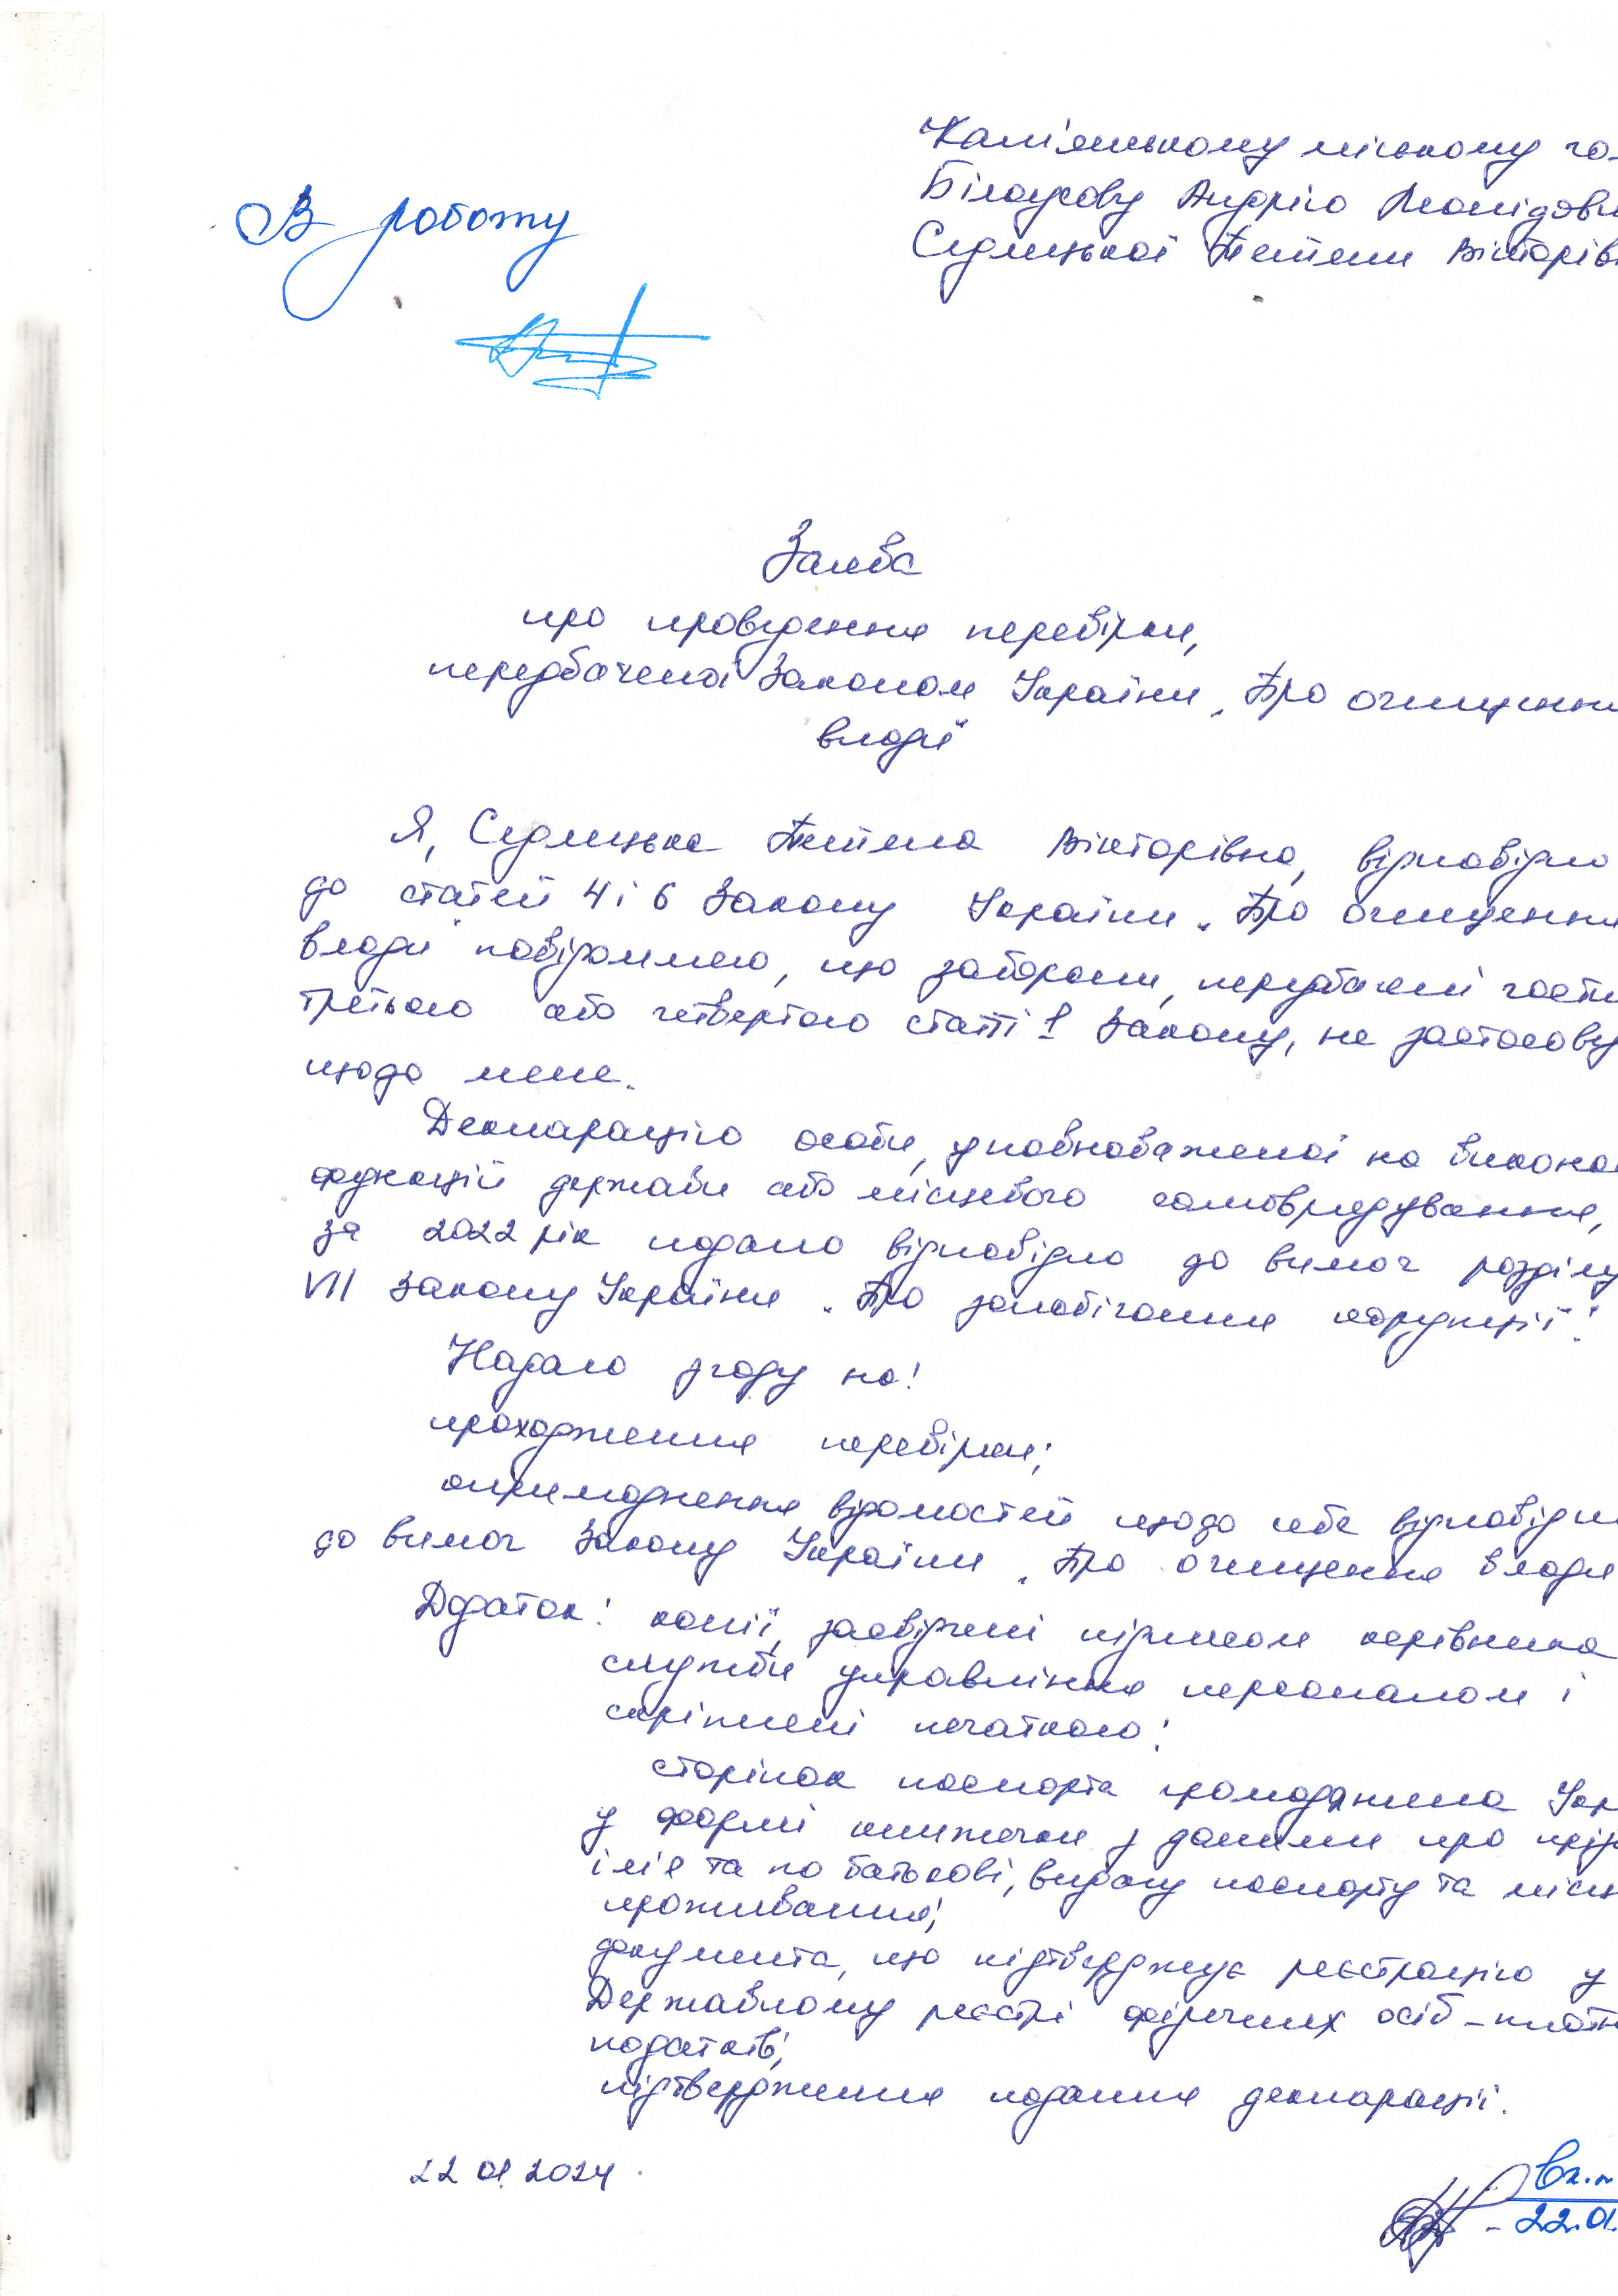 Кам'янському міському го
Білоусову Андрію Леонідови
Седлецької Тетяни Вікторів
В роботу
Заява
про проведення перевірки,
передбаченої Законом України „Про очищенн
влади"
Я, Седлецька Тетяна Вікторівна, відповідно
до статей 4 і 6 Закону України „Про очищення
влади" повідомляю, що заборони, передбачені части
третьою або четвертою статті 1 Закону, не застосову
щодо мене.
Декларацію особи, уповноваженої на викона
функцій держави або місцевого самоврядування,
за 2022 рік подано відповідно до вимог розділу
VII Закону України „Про запобігання корупції".
Надаю згоду на:
проходження перевірки;
оприлюднення відомостей щодо себе відповідн
до вимог Закону України „Про очищення влади
Додаток: копії, засвідчені підписом керівника
служби управління персоналом і
скріплені печаткою:
сторінок паспорта громадянина Укр
у формі книжечки з даними про пріз
ім'я та по батькові, видачу паспорту та місц
проживання;
документа, що підтверджує реєстрацію у
Державному реєстрі фізичних осіб-платн
податків;
підтвердження подання декларації.
22.01.2024
Вх.
22.01.